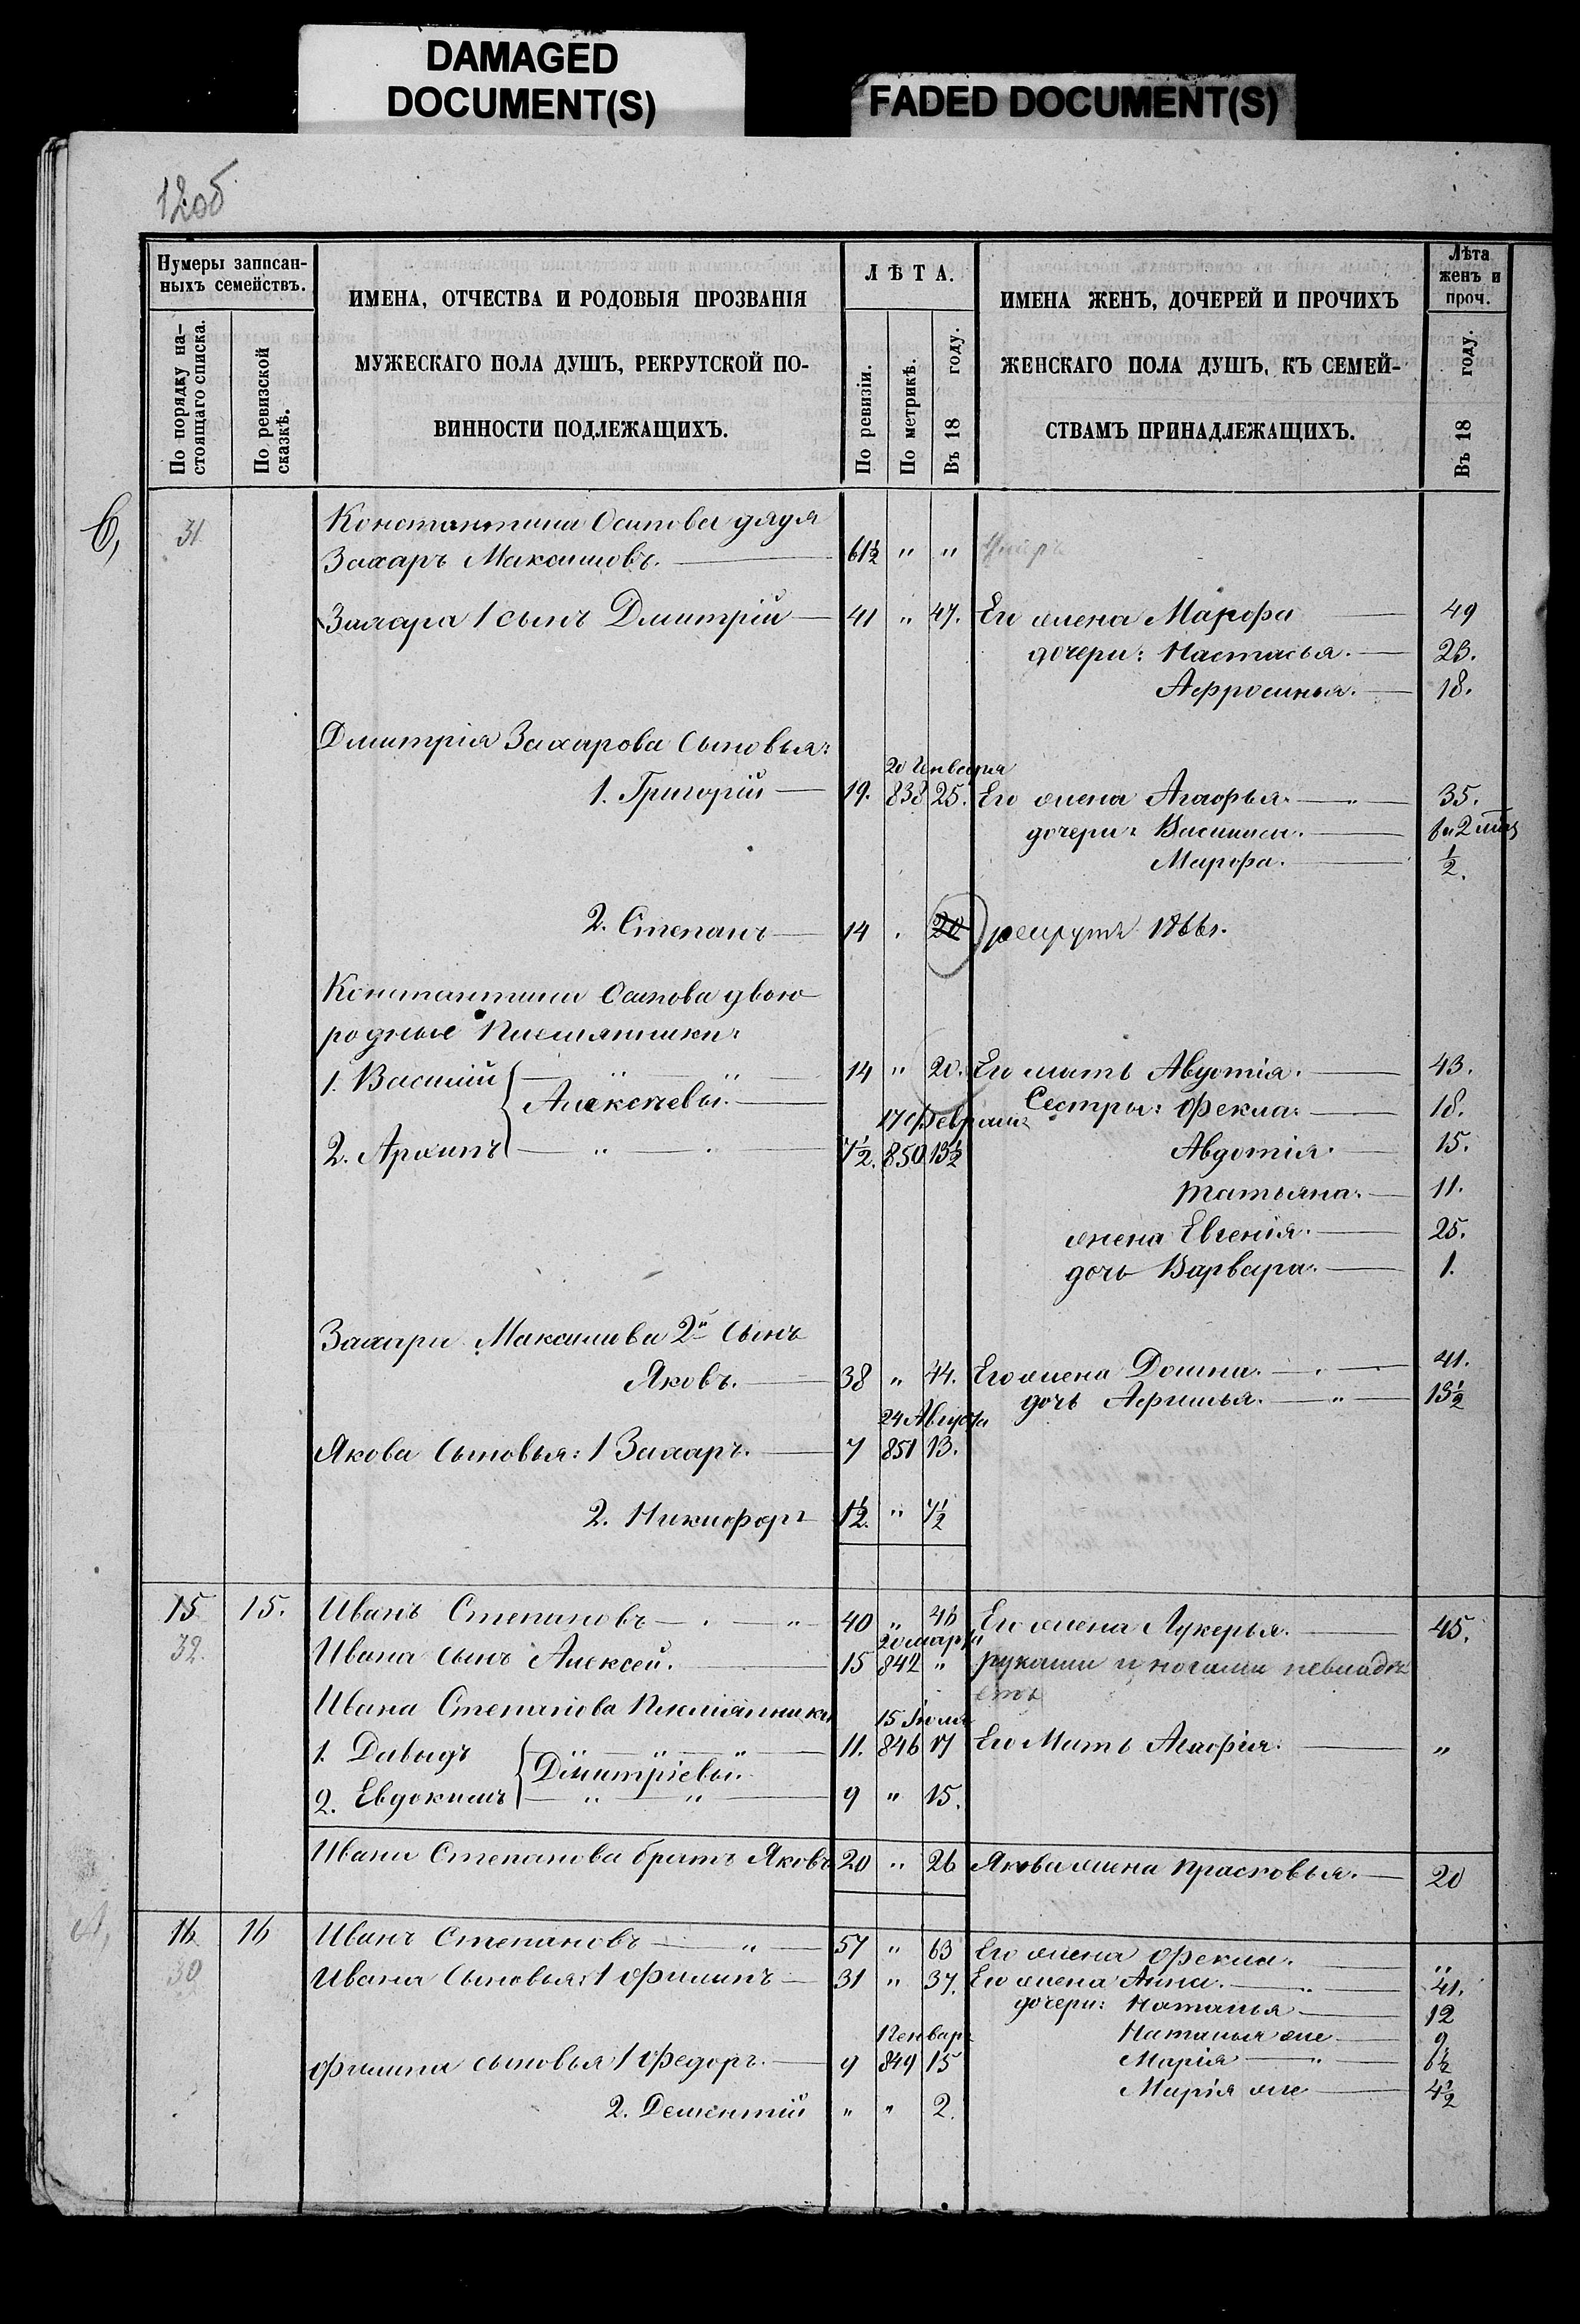 DAMAGED
DOCUMENT(S)
FADED DOCUMENT(S)
12об
Нумеры записан-
ныхъ семействъ.
По порядку на-
стоящаго списка.
По ревизской
сказкѣ.
ИМЕНА, ОТЧЕСТВА И РОДОВЫЯ ПРОЗВАНІЯ
МУЖЕСКАГО ПОЛА ДУШЪ, РЕКРУТСКОЙ ПО-
ВИННОСТИ ПОДЛЕЖАЩИХЪ.
ЛѢТА.
По ревизіи.
По метрикѣ.
Въ 18 году.
ИМЕНА ЖЕНЪ, ДОЧЕРЕЙ И ПРОЧИХЪ
ЖЕНСКАГО ПОЛА ДУШЪ, КЪ СЕМЕЙ-
СТВАМЪ ПРИНАДЛЕЖАЩИХЪ.
Лѣта
женъ и
проч.
Въ 18 году.
31 Константина Осипова дядя
Захаръ Максимовъ. 61½ " "
Захара 1 сынъ Дмитрій 41 " 47. Его жена Марфа 49
дочери: Настасья. 23.
Афросинья. 18.
Дмитрія Захарова сыновья:
20 Генваря
1. Григорій 19. 838 25. Его жена Агафья. " 35.
дочери: Василиса.
Марфа. ½.
2. Степанъ 14 . 20 рекрутъ 1866г.
Константина Осипова двою
родные племянники:
1. Василій 14 " 20. Его мать Авдотія. 43.
Алексѣевы. Сестры: Фекла. 18.
17 Февраля
2. Архипъ 7½. 850 13½ Авдотія. 15.
Татьяна. 11.
жена Евгенія. 25.
дочь Варвара. 1.
Захара Максимова 2й сынъ
Яковъ. 38 " 44. Его жена Домна. 41.
дочь Афимья. " 13½
24 Августа
Якова сыновья: 1 Захаръ. 7 851 13.
2. Никифоръ 1½. " 7½
15 15. Иванъ Степановъ " 40 " 46 Его жена Лукерья. 45.
20 марта
32. Ивана сынъ Алексей. 15 842 " руками и ногами невладѣ
етъ
Ивана Степанова племянники
15 Іюля
1. Давыдъ 11. 846 17 Его мать Агафія. "
Димитріевы.
2. Евдокимъ 9 " 15.
Ивана Степанова братъ Яковъ 20 " 26 Якова жена Прасковья. 20
16 16 Иванъ Степановъ " 57 " 63 Его жена Фекла. "
30 Ивана сыновья: 1 Филипъ 31 " 37. Его жена Анна. " 41.
дочери: Наталья 12
Наталья же 9
Филипа сыновья 1 Федоръ. 9 849 15 Марія " 6½
Марія же 4½
2. Дементій " " 2.